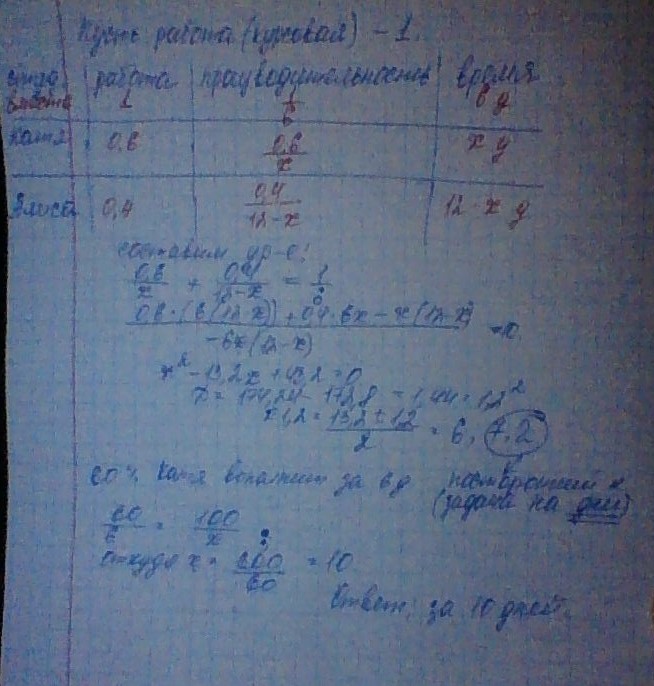 Пусть работа (курсовая) - 1.
работа производительность время
вместе 1 1/6 6 д
Катя 0,6 0,6/x x д
Алиса 0,4 0,4/12-x 12-x д
составим ур-е:
0,6/x + 0,4/12-x = 1/6
0,6·(6(12-x)) + 0,4·6x - x(12-x)/-6x(12-x) = 0
x² - 13,2x + 43,2 = 0
D = 174,24 - 172,8 = 1,44 = 1,2²
x1,2 = 13,2 ± 1,2/2 = 6, 7,2
60% Катя выполнит за 6 д посторонний к
(задача на дни)
60/6 = 100/x
откуда x = 600/60 = 10
Ответ: за 10 дней.